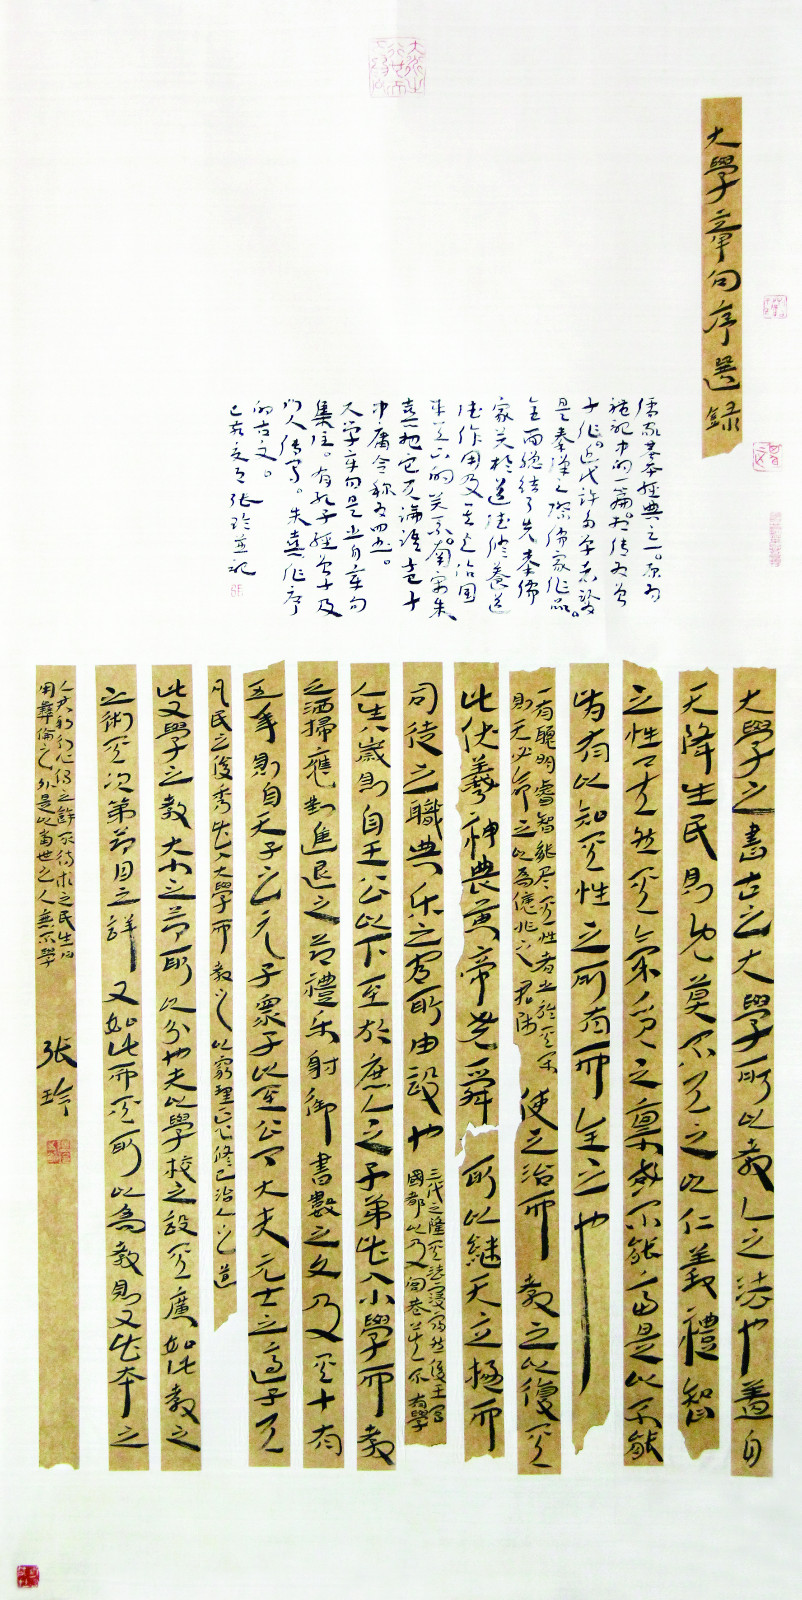 大學章句序選録
儒家基本經典之一。原为
禮記中的一篇。相传为曾
子作。近代许多学者认
是秦漢之際儒家作品。
全面总结了先秦儒
家关於道德修養道
德作用及其与治国
平天下的关系。南宋朱
熹把它及論語孟子
中庸合称为四书。
大学章句是
集注。有孔子經曾子及
门人传写。朱熹作序
的古文。
己亥之夏张玲并记
大學之書古之大學所以教人之法也蓋自
天降生民則既莫不與之以仁義禮智
之性矣然其氣質之稟或不能齊是以不能
皆有以知其性之所有而全之也
一有聰明睿智能尽其性者出於其間
則天必命之以為億兆之君師
使之治而教之以復其
此伏羲神農黃帝堯舜所以繼天立極而
司徒之職典樂之官所由設也
三代之隆其法寖備然後王宮
國都以及閭巷莫不有學
人生八歲則自王公以下至於庶人之子弟皆入小學而教
之洒掃應對進退之節禮樂射御書數之文及其十有
五年則自天子之元子衆子以至公卿大夫元士之適子與
凡民之俊秀皆入大學而教之以窮理正心修己治人之道
此又學之教大小之節所以分也夫以學校之設其廣如此教之
之術其次第節目之詳又如此而其所以為教則又皆本之
人君躬行心得之餘不待求之民生日
用彝倫之外是以當世之人無不學
张玲